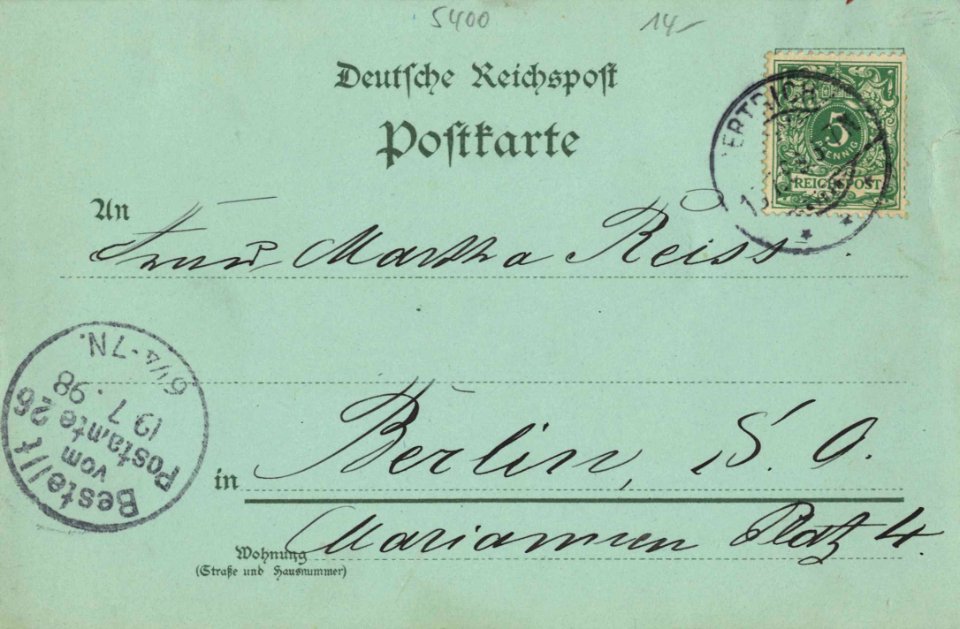 5400 14-
Deutsche Reichspost
Postkarte
5
PFENNIG
REICHSPOST
BERTRICH
An
Frau Martha Reiss.
Bestellt
vom
Postamte 26
19 7. 98
6¼-7N.
in Berlin, S. O.
Mariannen Platz 4.
Wohnung
(Straße und Hausnummer)